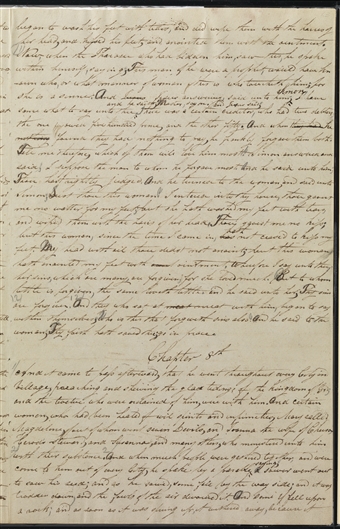 began to wash his feet with tears, and did wipe them with the hairs of
her head, and kissed his feet, and anointed them with the ointment
Now when the Pharisee who had bidden him, saw this, he spoke
within himself, saying, This man, if he were a prophet, would have known
who, or what manner of woman this is who toucheth him, for
she is a sinner. And Jesus answering, said unto him, Simon, I have
some what to say unto thee
and he saith, Master, say on
There was a certain creditor, who had two debtors
the one owed five hundred pence, and the other fifty. And when
he found they had nothing to pay, he frankly forgave them both.
Tell me therefore, which of them will love him most. Simon answered and
said, I suppose the man to whom he forgave most. And he said unto him,
Thou hast rightly judged. And he turned to the woman, and said unto
Simon, Seest thou this woman? I entered into thy house, thou gavest
me no water for my feet; but she hath washed my feet with tears,
and wiped them with the hairs of her head. Thou gavest me no kiss;
but this woman, since the time I came in, hath not ceased to kiss my
feet. My head with oil thou didst not anoint; but this woman
hath anointed my feet with ointment. Wherefore I say unto thee,
her sins, which are many, are forgiven; for she loved much. But to whom
little is forgiven, the same loveth little. And he said unto her, Thy sins
are forgiven. And they who sat at meat with him, began to say
within themselves, Who is this that forgiveth sins also? And he said to the
woman, Thy faith hath saved thee; go in peace
Chapter 8th
And it came to pass afterward, that he went throughout every city and
village, preaching and shewing the glad tidings of the kingdom of God
and the twelve who were ordained of him, were with him, And certain
women, who had been healed of evil spirits and infirmities, Mary called
Magdalene, out of whom went seven Devils, and Joanna the wife of Chuza
Herods steward, and Susanna, and many others, who ministered unto him
with their substance. And when much people were gathered together, and were
come to him out of every City, he spake by a parable, saying, A sower went out
to sow his seed; and as he sowed, some fell by the way side; and it was
trodden down, and the fowls of the air devoured it. And some fell upon
a rock; and as soon as it was sprung up, it withered away, because it